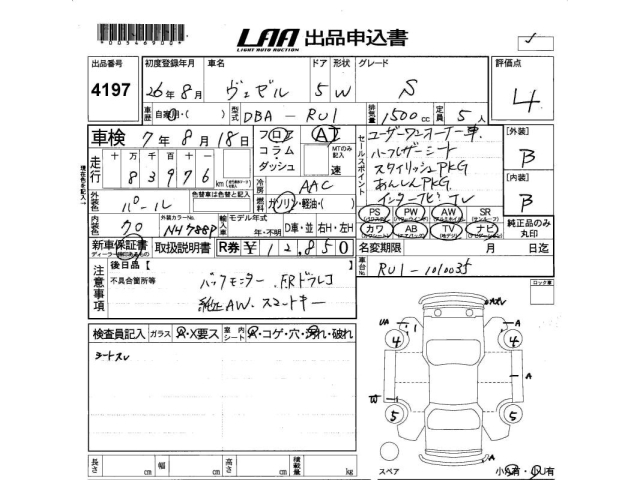 LAA 出品申込書
LIGHT AUTO AUCTION
出品番号
4197
初度登録年月
26年8月
車名
ヴェゼル
ドア 形状
5 W
グレード
S
評価点
4
車歴 自家用・( )
型式 DBA-RU1
排気量 1500cc
定員 5人
車検 7年8月18日
走行 十万千百十一
83976km
シフト
フロア
コラム・
ダッシュ
AT
MTのみ記入
速
冷房 AAC
燃料 ガソリン・軽油・( )
セールスポイント
ユーザーワンオーナー車.
ハーフレザーシート
スタイリッシュPKG
あんしんPKG.
インターナビ TV
[外装]
B
[内装]
B
純正品のみ
丸印
PS PW AW SR
カワ AB TV ナビ
外装色 パール
色替車は色替と記入
内装色 クロ
外装カラーNo.
NH788P
輸入車
モデル年式
年・不明
D車・並 右H・左H
新車保証書
取扱説明書
R券 ¥12,850
名変期限 月 日迄
車台No. RU1-1010035
注意事項
後日品【
不具合箇所等
バックモニター.FRドラレコ
純正AW.スマートキー
ロック車
検査員記入
ガラス A・X要ス
室内シート A・コゲ・穴・汚れ・破れ
シートスレ
長さ cm 幅 cm 高さ cm 積載量 kg
A
UA
4
4
A
A
W
5
5
A
スペア